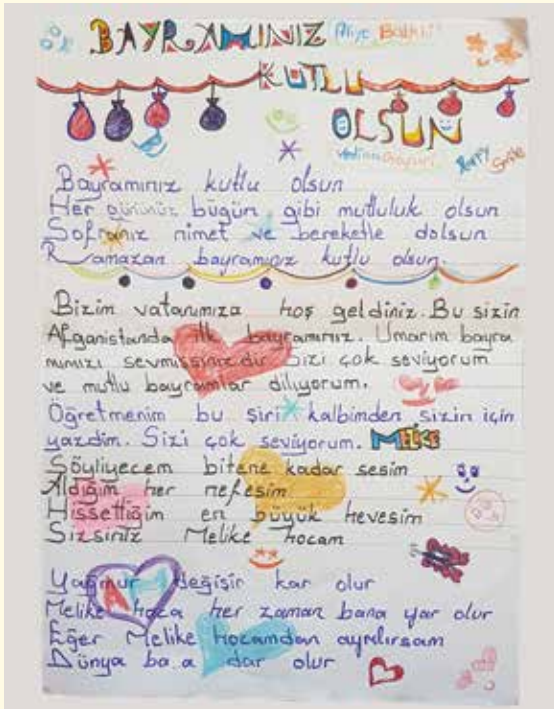 BAYRAMINIZ
KUTLU
OLSUN
Happy Smile
Bayramınız kutlu olsun
Her gününüz bügün gibi mutluluk olsun
Sofranız nimet ve bereketle dolsun
Ramazan bayramınız kutlu olsun
Bizim vatanımıza hoş geldiniz. Bu sizin
Afganistanda ilk bayramınız. Umarım bayra
mımızı sevmişsinizdir Sizi çok seviyorum
ve mutlu bayramlar diliyorum.
Öğretmenim bu şiri kalbimden sizin için
yazdım. Sizi çok seviyorum. MELİKE
Söyliyecem bitene kadar sesim
Aldığım her nefesim
Hissettiğim en büyük hevesim
Sizsiniz Melike hocam
Yağmur değişir kar olur
Melike hoca her zaman bana yar olur
Eğer Melike hocamdan ayrılırsam
Dünya dar olur